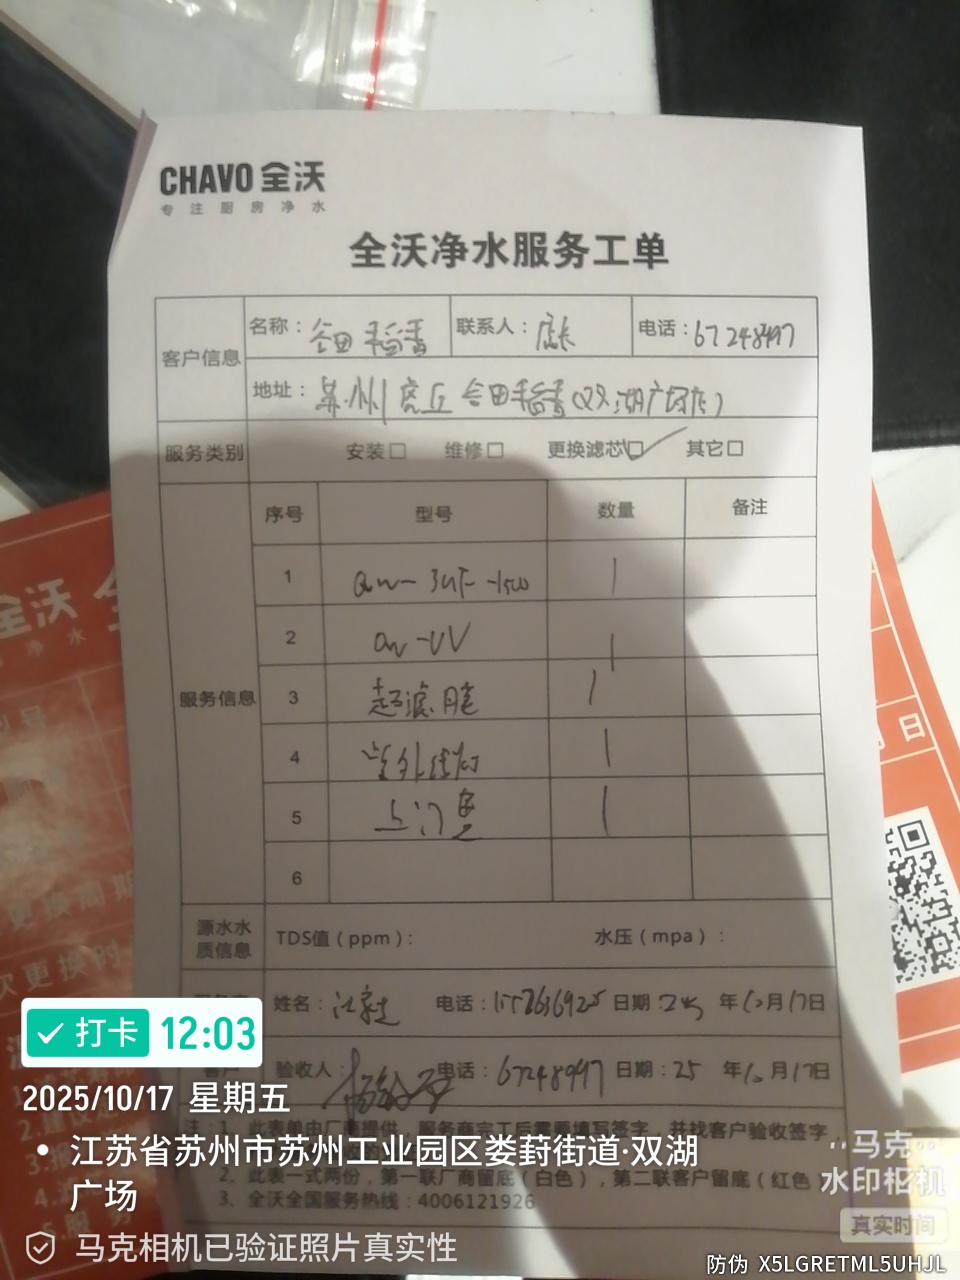 CHAVO 全沃
专注厨房净水
全沃净水服务工单
客户信息
名称: 谷田稻香 联系人: 店长 电话: 67248997
地址: 苏州虎丘谷田稻香(双湖广场店)
服务类别 安装□ 维修□ 更换滤芯☑ 其它□
服务信息
序号 型号 数量 备注
1 QW-3UF-1500 1
2 QW-UV 1
3 超滤膜 1
4 紫外线灯 1
5 上门费 1
6
源水水质信息 TDS值(ppm): 水压(mpa):
姓名: 电话: 日期: 25年10月17日
客户 验收人: 电话: 67248997 日期: 25年10月17日
注: 1、此表单由厂商提供, 服务商完工后需要填写签字, 并找客户验收签字
2、此表一式两份, 第一联厂商留底(白色), 第二联客户留底(红色
3、全沃全国服务热线: 4006121926
全沃 全
净水
型号
更换周期
次更换时
日
打卡 12:03
2025/10/17 星期五
江苏省苏州市苏州工业园区娄葑街道·双湖
广场
马克相机已验证照片真实性
马克
水印相机
真实时间
防伪 X5LGRETML5UHJL